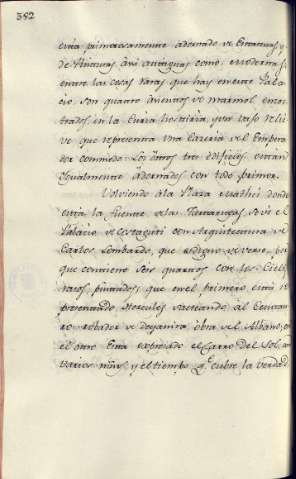 382
está primorosamente adornado de Estatuas, y
de Pinturas assi antiguas como modernas;
entre las cosas raras que hay en este Pala-
cio son quatro de marmol encon-
trados en la Curia hostiria, y un vaso relie
ve que representa una Cazeria del Empera-
dor commodo: Los ôtros tres edificios están
Ygualmente adornados con todo primor.
Volviendo âla Plaza Mathei donde
está la fuente delas Tartarugas, â vi el
Palacio de Costaguti con Arquitectura de
Carlos Lombardo, que es digno de verse, por
que contiene seis quartos con los Cielos
rasos, pintados; que en el primero está re
presentando Hercules saeteando al Centau-
ro robador de Deyanira ôbra del Albano, en
el otro Está expresado el Carro del Sol, con
varios niños, y el tiempo q.e cubre la verdad